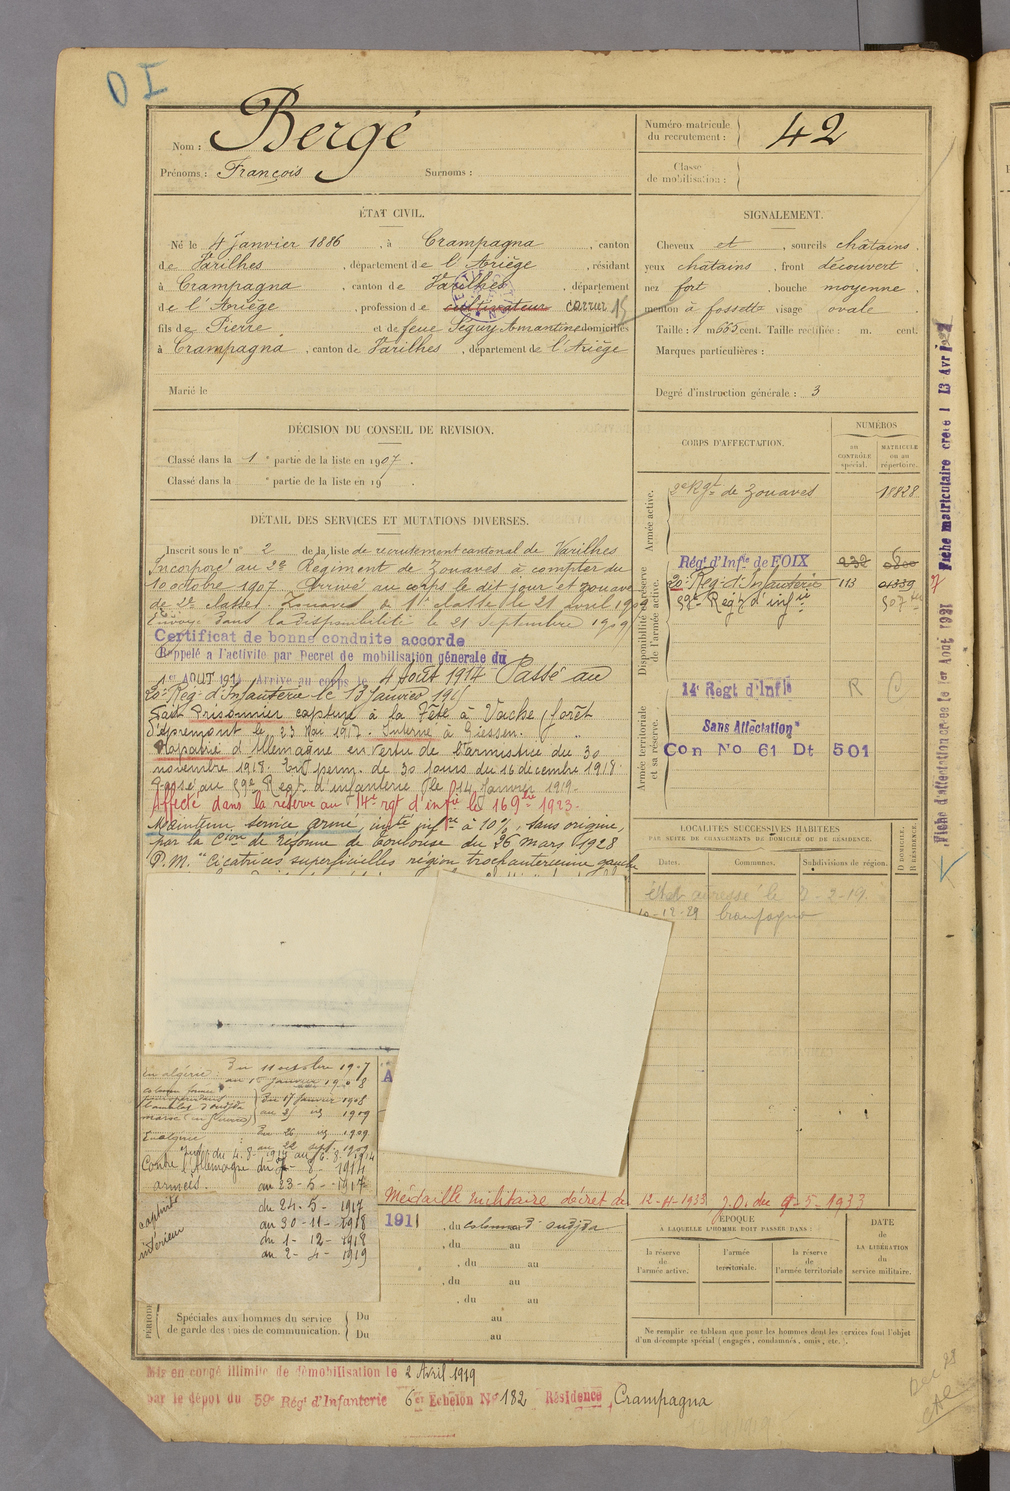 O I
Nom : Bergé
Prénoms : François Surnoms :
Numéro matricule du recrutement : 42
Classe de mobilisation :
ÉTAT CIVIL.
Né le 4 Janvier 1886, à Crampagna, canton
de Varilhes, département de l'Ariège, résidant
à Crampagna, canton de Varilhes, département
de l'Ariège, profession de cultivateur carrier 15
fils de Pierre et de feue Séguy Amantine domiciliés
à Crampagna, canton de Varilhes, département de l'Ariège
Marié le
SIGNALEMENT.
Cheveux et, sourcils châtains.
yeux châtains, front découvert
nez fort, bouche moyenne
menton à fossette visage ovale
Taille : 1 m 655 cent. Taille rectifiée : m. cent.
Marques particulières :
Degré d'instruction générale : 3
DÉCISION DU CONSEIL DE REVISION.
Classé dans la 1e partie de la liste en 1907.
Classé dans la e partie de la liste en 19 .
DÉTAIL DES SERVICES ET MUTATIONS DIVERSES.
Inscrit sous le n° 2 de la liste de recrutement cantonal de Varilhes
Incorporé au 2e Régiment de Zouaves à compter du
10 octobre 1907. Arrivé au corps le dit jour et zouave
de 2e classe. Zouave de 1e classe le 21 avril 1909
Envoyé dans la disponibilité le 21 Septembre 1909
Certificat de bonne conduite accordé
Rappelé a l'activité par Decret de mobilisation générale du
1er AOUT 1914 Arrivé au corps le 4 Août 1914 Passé au
20e Reg. d'Infanterie le 13 Janvier 191
Fait Prisonnier capturé à la Tête à Vache (forêt
d'Apremont le 23 Mai 1917. Interné à Giessen.
Rapatrié d'Allemagne en vertu de l'armistice du 30
novembre 1918. En perm. de 30 jours du 16 décembre 1918.
Passé au 59e Regt. d'infanterie le 14 Janvier 1919.
Affecté dans la réserve au 14e rgt d'infie le 16 9bre 1923.
Maintenu service armé, invté infre à 10%, sans origine,
par la Cion de Réforme de Toulouse du 26 Mars 1928
P.M. "Cicatrices superficielles région trochanterienne gauche
CORPS D'AFFECTATION.
NUMÉROS
au CONTRÔLE spécial.
MATRICULE ou au répertoire.
Armée active.
2e Rgt de Zouaves 18828
Disponibilité et réserve de l'armée active.
Régt d'Infie de FOIX
20e Reg. d'Infanterie 113 01339
59e Regt d'infie
Armée territoriale et sa réserve.
14e Regt d'Infie R
Sans Affectation
Con No 61 Dt 501
LOCALITÉS SUCCESSIVES HABITÉES
PAR SUITE DE CHANGEMENTS DE DOMICILE OU DE RÉSIDENCE.
Dates. Communes. Subdivisions de région. D DOMICILE. R RÉSIDENCE.
adressé le 2-2-19.
10-12-29 Crampagna
En algérie : Du 11 octobre 1907
au 1er Janvier 1908
Du 17 Janvier 1908
au 1909
En algérie Du 26 1909
au 22 sept 1909
Intr du 4.8.1914 au 6.8.1914
Contre l'Allemagne du 7-8-1914
armées. au 23-5-1917
captivité du 24-5-1917
au 30-11-1918
intérieur du 1-12-1918
au 2-4-1919
A
Médaille militaire décret du 12-4-1933 J.O. du 9-5-1933
191 , du colonne d'oudjda
, du au
, du au
, du au
, du au
PÉRIODES
Spéciales aux hommes du service de garde des voies de communication.
Du au
Du au
ÉPOQUE
À LAQUELLE L'HOMME DOIT PASSER DANS :
la réserve de l'armée active.
l'armée territoriale.
la réserve de l'armée territoriale
DATE de LA LIBÉRATION du service militaire.
Ne remplir ce tableau que pour les hommes dont les services font l'objet
d'un décompte spécial (engagés, condamnés, omis, etc.).
Mis en congé illimité de démobilisation le 2 Avril 1919
par le dépôt du 59e Régt d'Infanterie 6e Echelon No 182 Résidence Crampagna
Fiche d'affectation créée le 1er Août 1931
Fiche matriculaire créée l 13 Avr